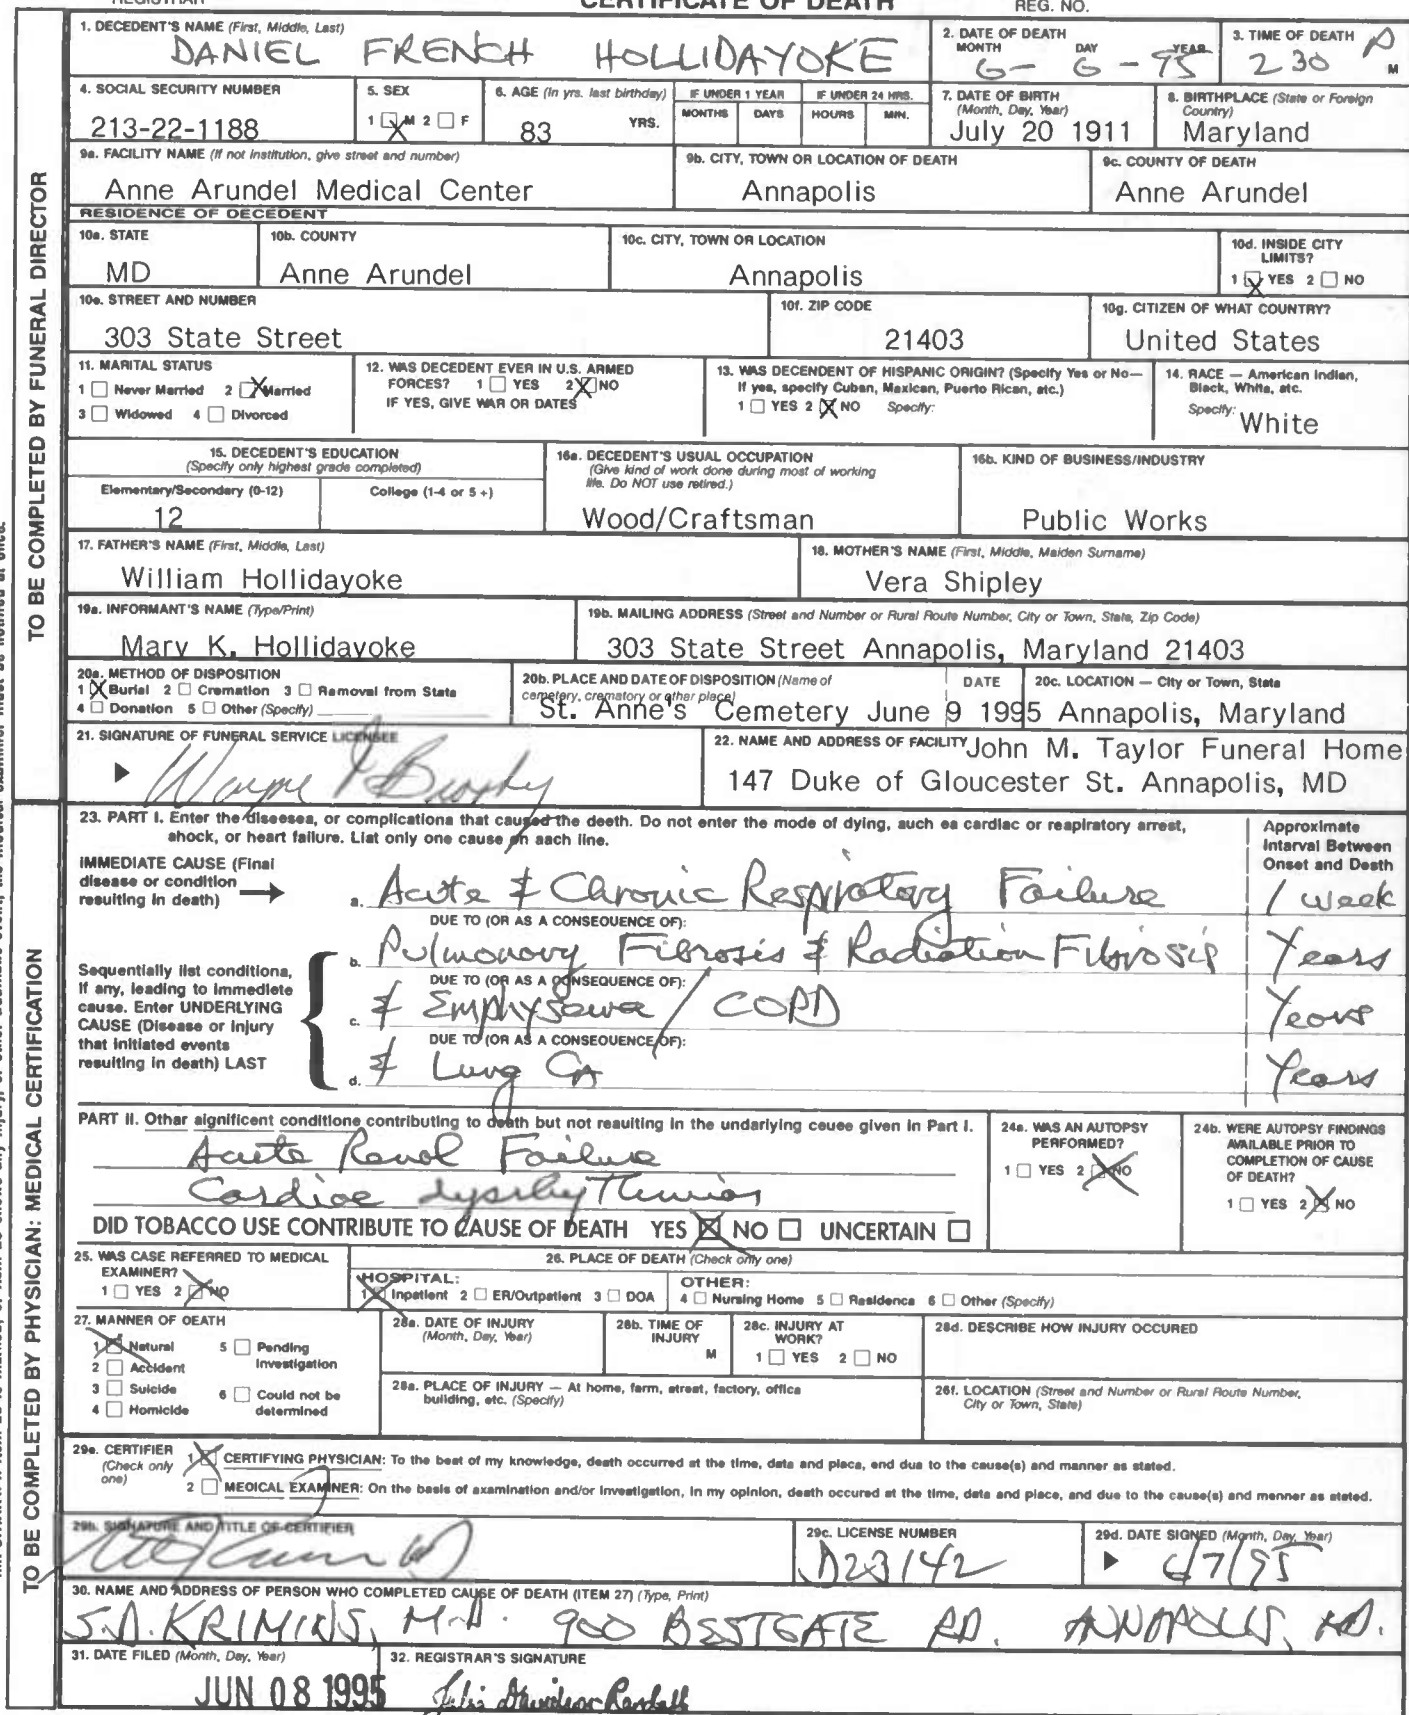 REGISTRAR CERTIFICATE OF DEATH REG. NO.
TO BE COMPLETED BY FUNERAL DIRECTOR
1. DECEDENT'S NAME (First, Middle, Last)
DANIEL FRENCH HOLLIDAYOKE
2. DATE OF DEATH
MONTH DAY YEAR
6- 6- 95
3. TIME OF DEATH
230 P M
4. SOCIAL SECURITY NUMBER
213-22-1188
5. SEX
1 ☒ M 2 ☐ F
6. AGE (In yrs. last birthday)
83 YRS.
IF UNDER 1 YEAR
MONTHS DAYS
IF UNDER 24 HRS.
HOURS MIN.
7. DATE OF BIRTH
(Month, Day, Year)
July 20 1911
8. BIRTHPLACE (State or Foreign
Country)
Maryland
9a. FACILITY NAME (If not institution, give street and number)
Anne Arundel Medical Center
9b. CITY, TOWN OR LOCATION OF DEATH
Annapolis
9c. COUNTY OF DEATH
Anne Arundel
RESIDENCE OF DECEDENT
10a. STATE
MD
10b. COUNTY
Anne Arundel
10c. CITY, TOWN OR LOCATION
Annapolis
10d. INSIDE CITY
LIMITS?
1 ☒ YES 2 ☐ NO
10e. STREET AND NUMBER
303 State Street
10f. ZIP CODE
21403
10g. CITIZEN OF WHAT COUNTRY?
United States
11. MARITAL STATUS
1 ☐ Never Married 2 ☒ Married
3 ☐ Widowed 4 ☐ Divorced
12. WAS DECEDENT EVER IN U.S. ARMED
FORCES? 1 ☐ YES 2 ☒ NO
IF YES, GIVE WAR OR DATES
13. WAS DECENDENT OF HISPANIC ORIGIN? (Specify Yes or No—
If yes, specify Cuban, Mexican, Puerto Rican, etc.)
1 ☐ YES 2 ☒ NO Specify:
14. RACE — American Indian,
Black, White, etc.
Specify: White
15. DECEDENT'S EDUCATION
(Specify only highest grade completed)
Elementary/Secondary (0-12) College (1-4 or 5 +)
12
16a. DECEDENT'S USUAL OCCUPATION
(Give kind of work done during most of working
life. Do NOT use retired.)
Wood/Craftsman
16b. KIND OF BUSINESS/INDUSTRY
Public Works
17. FATHER'S NAME (First, Middle, Last)
William Hollidayoke
18. MOTHER'S NAME (First, Middle, Maiden Surname)
Vera Shipley
19a. INFORMANT'S NAME (Type/Print)
Mary K. Hollidayoke
19b. MAILING ADDRESS (Street and Number or Rural Route Number, City or Town, State, Zip Code)
303 State Street Annapolis, Maryland 21403
20a. METHOD OF DISPOSITION
1 ☒ Burial 2 ☐ Cremation 3 ☐ Removal from State
4 ☐ Donation 5 ☐ Other (Specify)
20b. PLACE AND DATE OF DISPOSITION (Name of
cemetery, crematory or other place) DATE
20c. LOCATION — City or Town, State
St. Anne's Cemetery June 9 1995 Annapolis, Maryland
21. SIGNATURE OF FUNERAL SERVICE LICENSEE
22. NAME AND ADDRESS OF FACILITY John M. Taylor Funeral Home
147 Duke of Gloucester St. Annapolis, MD
TO BE COMPLETED BY PHYSICIAN: MEDICAL CERTIFICATION
23. PART I. Enter the diseases, or complications that caused the death. Do not enter the mode of dying, such as cardiac or respiratory arrest,
shock, or heart failure. List only one cause on each line.
Approximate
Interval Between
Onset and Death
IMMEDIATE CAUSE (Final
disease or condition
resulting in death) →
a. Acute & Chronic Respiratory Failure 1 week
DUE TO (OR AS A CONSEQUENCE OF):
b. Pulmonary Fibrosis & Radiation Fibrosis Years
Sequentially list conditions,
if any, leading to immediate
cause. Enter UNDERLYING
CAUSE (Disease or injury
that initiated events
resulting in death) LAST
DUE TO (OR AS A CONSEQUENCE OF):
c. & Emphysema / COPD Years
DUE TO (OR AS A CONSEQUENCE OF):
d. & Lung CA Years
PART II. Other significant conditions contributing to death but not resulting in the underlying cause given in Part I.
Acute Renal Failure
Cardiac dysrhythmias
DID TOBACCO USE CONTRIBUTE TO CAUSE OF DEATH YES ☒ NO ☐ UNCERTAIN ☐
24a. WAS AN AUTOPSY
PERFORMED?
1 ☐ YES 2 ☒ NO
24b. WERE AUTOPSY FINDINGS
AVAILABLE PRIOR TO
COMPLETION OF CAUSE
OF DEATH?
1 ☐ YES 2 ☒ NO
25. WAS CASE REFERRED TO MEDICAL
EXAMINER?
1 ☐ YES 2 ☒ NO
26. PLACE OF DEATH (Check only one)
HOSPITAL:
1 ☒ Inpatient 2 ☐ ER/Outpatient 3 ☐ DOA
OTHER:
4 ☐ Nursing Home 5 ☐ Residence 6 ☐ Other (Specify)
27. MANNER OF DEATH
1 ☒ Natural 5 ☐ Pending
Investigation
2 ☐ Accident
3 ☐ Suicide 6 ☐ Could not be
determined
4 ☐ Homicide
28a. DATE OF INJURY
(Month, Day, Year)
28b. TIME OF
INJURY
M
28c. INJURY AT
WORK?
1 ☐ YES 2 ☐ NO
28d. DESCRIBE HOW INJURY OCCURED
28e. PLACE OF INJURY — At home, farm, street, factory, office
building, etc. (Specify)
28f. LOCATION (Street and Number or Rural Route Number,
City or Town, State)
29a. CERTIFIER
(Check only
one)
1 ☒ CERTIFYING PHYSICIAN: To the best of my knowledge, death occurred at the time, date and place, and due to the cause(s) and manner as stated.
2 ☐ MEDICAL EXAMINER: On the basis of examination and/or investigation, in my opinion, death occured at the time, date and place, and due to the cause(s) and manner as stated.
29b. SIGNATURE AND TITLE OF CERTIFIER
29c. LICENSE NUMBER
D23142
29d. DATE SIGNED (Month, Day, Year)
6/7/95
30. NAME AND ADDRESS OF PERSON WHO COMPLETED CAUSE OF DEATH (ITEM 27) (Type, Print)
S.D. KRIMINS, M.D. 900 BESTGATE RD. ANNAPOLIS, MD.
31. DATE FILED (Month, Day, Year)
JUN 08 1995
32. REGISTRAR'S SIGNATURE